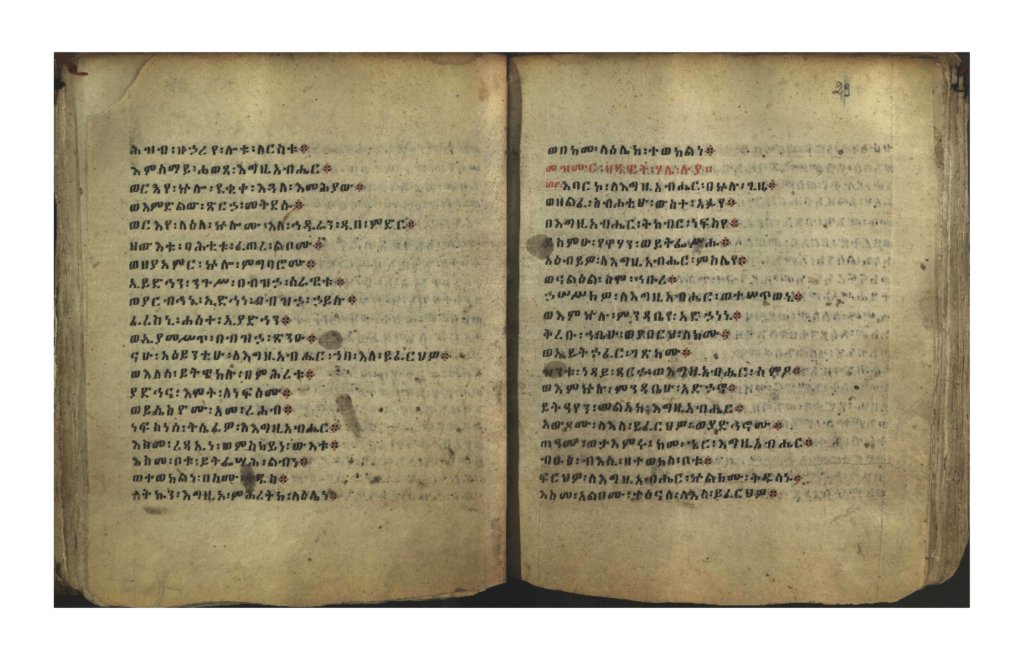 ሕዝብ፡ዘኃረየ፡ሎቱ፡ለርስቱ፨
እምሰማይ፡ሐወጸ፡እግዚአብሔር፨
ወርእየ፡ኵሎ፡ደቂቀ፡እጓለ፡እመሕያው፨
ወእምድልው፡ጽርሐ፡መቅደሱ፨
ወርእየ፡ላዕለ፡ኵሎሙ፡እለ፡ኅዱራን፡ዲበ፡ምድር፨
ዘውእቱ፡ባሕቲቱ፡ፈጠረ፡ልቦሙ፨
ወዘያአምር፡ኵሎ፡ምግባሮሙ፨
ኢይድኅን፡ንጉሥ፡በብዝኃ፡ሰራዊቱ፨
ወያርብሓኒ፡ኢድኅነ፡በብዝኃ፡ኃይሉ፨
ፈረስኒ፡ሐሰት፡ኢያድኅን፨
ወኢያመሥጥ፡በብዝኃ፡ጽንዑ፨
ናሁ፡አዕይንቲሁ፡ለእግዚአብሔር፡ኀበ፡እለ፡ይፈርህዎ፨
ወእለሰ፡ይትዌከሉ፡በምሕረቱ፨
ያድኅና፡እሞት፡ለነፍሶሙ፨
ወይሴስዮሙ፡አመ፡ረሐብ፨
ነፍስነሰ፡ትሴፈዎ፡ለእግዚአብሔር፨
እስመ፡ረዳኢነ፡ወምስካይነ፡ውእቱ፨
እስመ፡ቦቱ፡ይትፌሣሕ፡ልብነ፨
ወተወከልነ፡በስሙ፡ቅዱስ፨
ለትኩን፡እግዚኦ፡ምሕረትከ፡ላዕሌነ፨
23
ወበከመ፡ላዕሌከ፡ተወከልነ፨
መዝሙር፡ዘዳዊት፡ሃሌ፡ሉያ፡፡
እባርኮ፡ለእግዚአብሔር፡በኵሉ፡ጊዜ፨
ወዘልፈ፡ስብሐቲሁ፡ውስተ፡አፉየ፨
በእግዚአብሔር፡ትከብር፡ነፍስየ፨
ይስምዑ፡የዋሃን፡ወይትፌሥሑ፨
አዕብይዎ፡ለእግዚአብሔር፡ምስሌየ፨
ወናልዕል፡ስሞ፡ኅቡረ፨
ኃሠሥክዎ፡ለእግዚአብሔር፡ወተሠጥወኒ፨
ወእምኵሉ፡ምንዳቤየ፡አድኃነኒ፨
ቅረቡ፡ኀቤሁ፡ወያበርህ፡ለክሙ፨
ወኢይትኃፈር፡ገጽክሙ፨
ዝንቱ፡ነዳይ፡ጸርኀ፡ወእግዚአብሔር፡ሰምዖ፨
ወእምኵሉ፡ምንዳቤሁ፡አድኃኖ፨
ይትዓየን፡መልአከ፡እግዚአብሔር፨
አውዶሙ፡ለእለ፡ይፈርህዎ፡ወያድኅኖሙ፨
ጠዓሙ፡ወታእምሩ፡ከመ፡ኄር፡እግዚአብሔር፨
ብፁዕ፡ብእሲ፡ዘተወከለ፡ቦቱ፨
ፍርህዎ፡ለእግዚአብሔር፡ኵልክሙ፡ቅዱሳኑ፨
እስመ፡አልቦሙ፡ተፅናስ፡ለእለ፡ይፈርህዎ፨